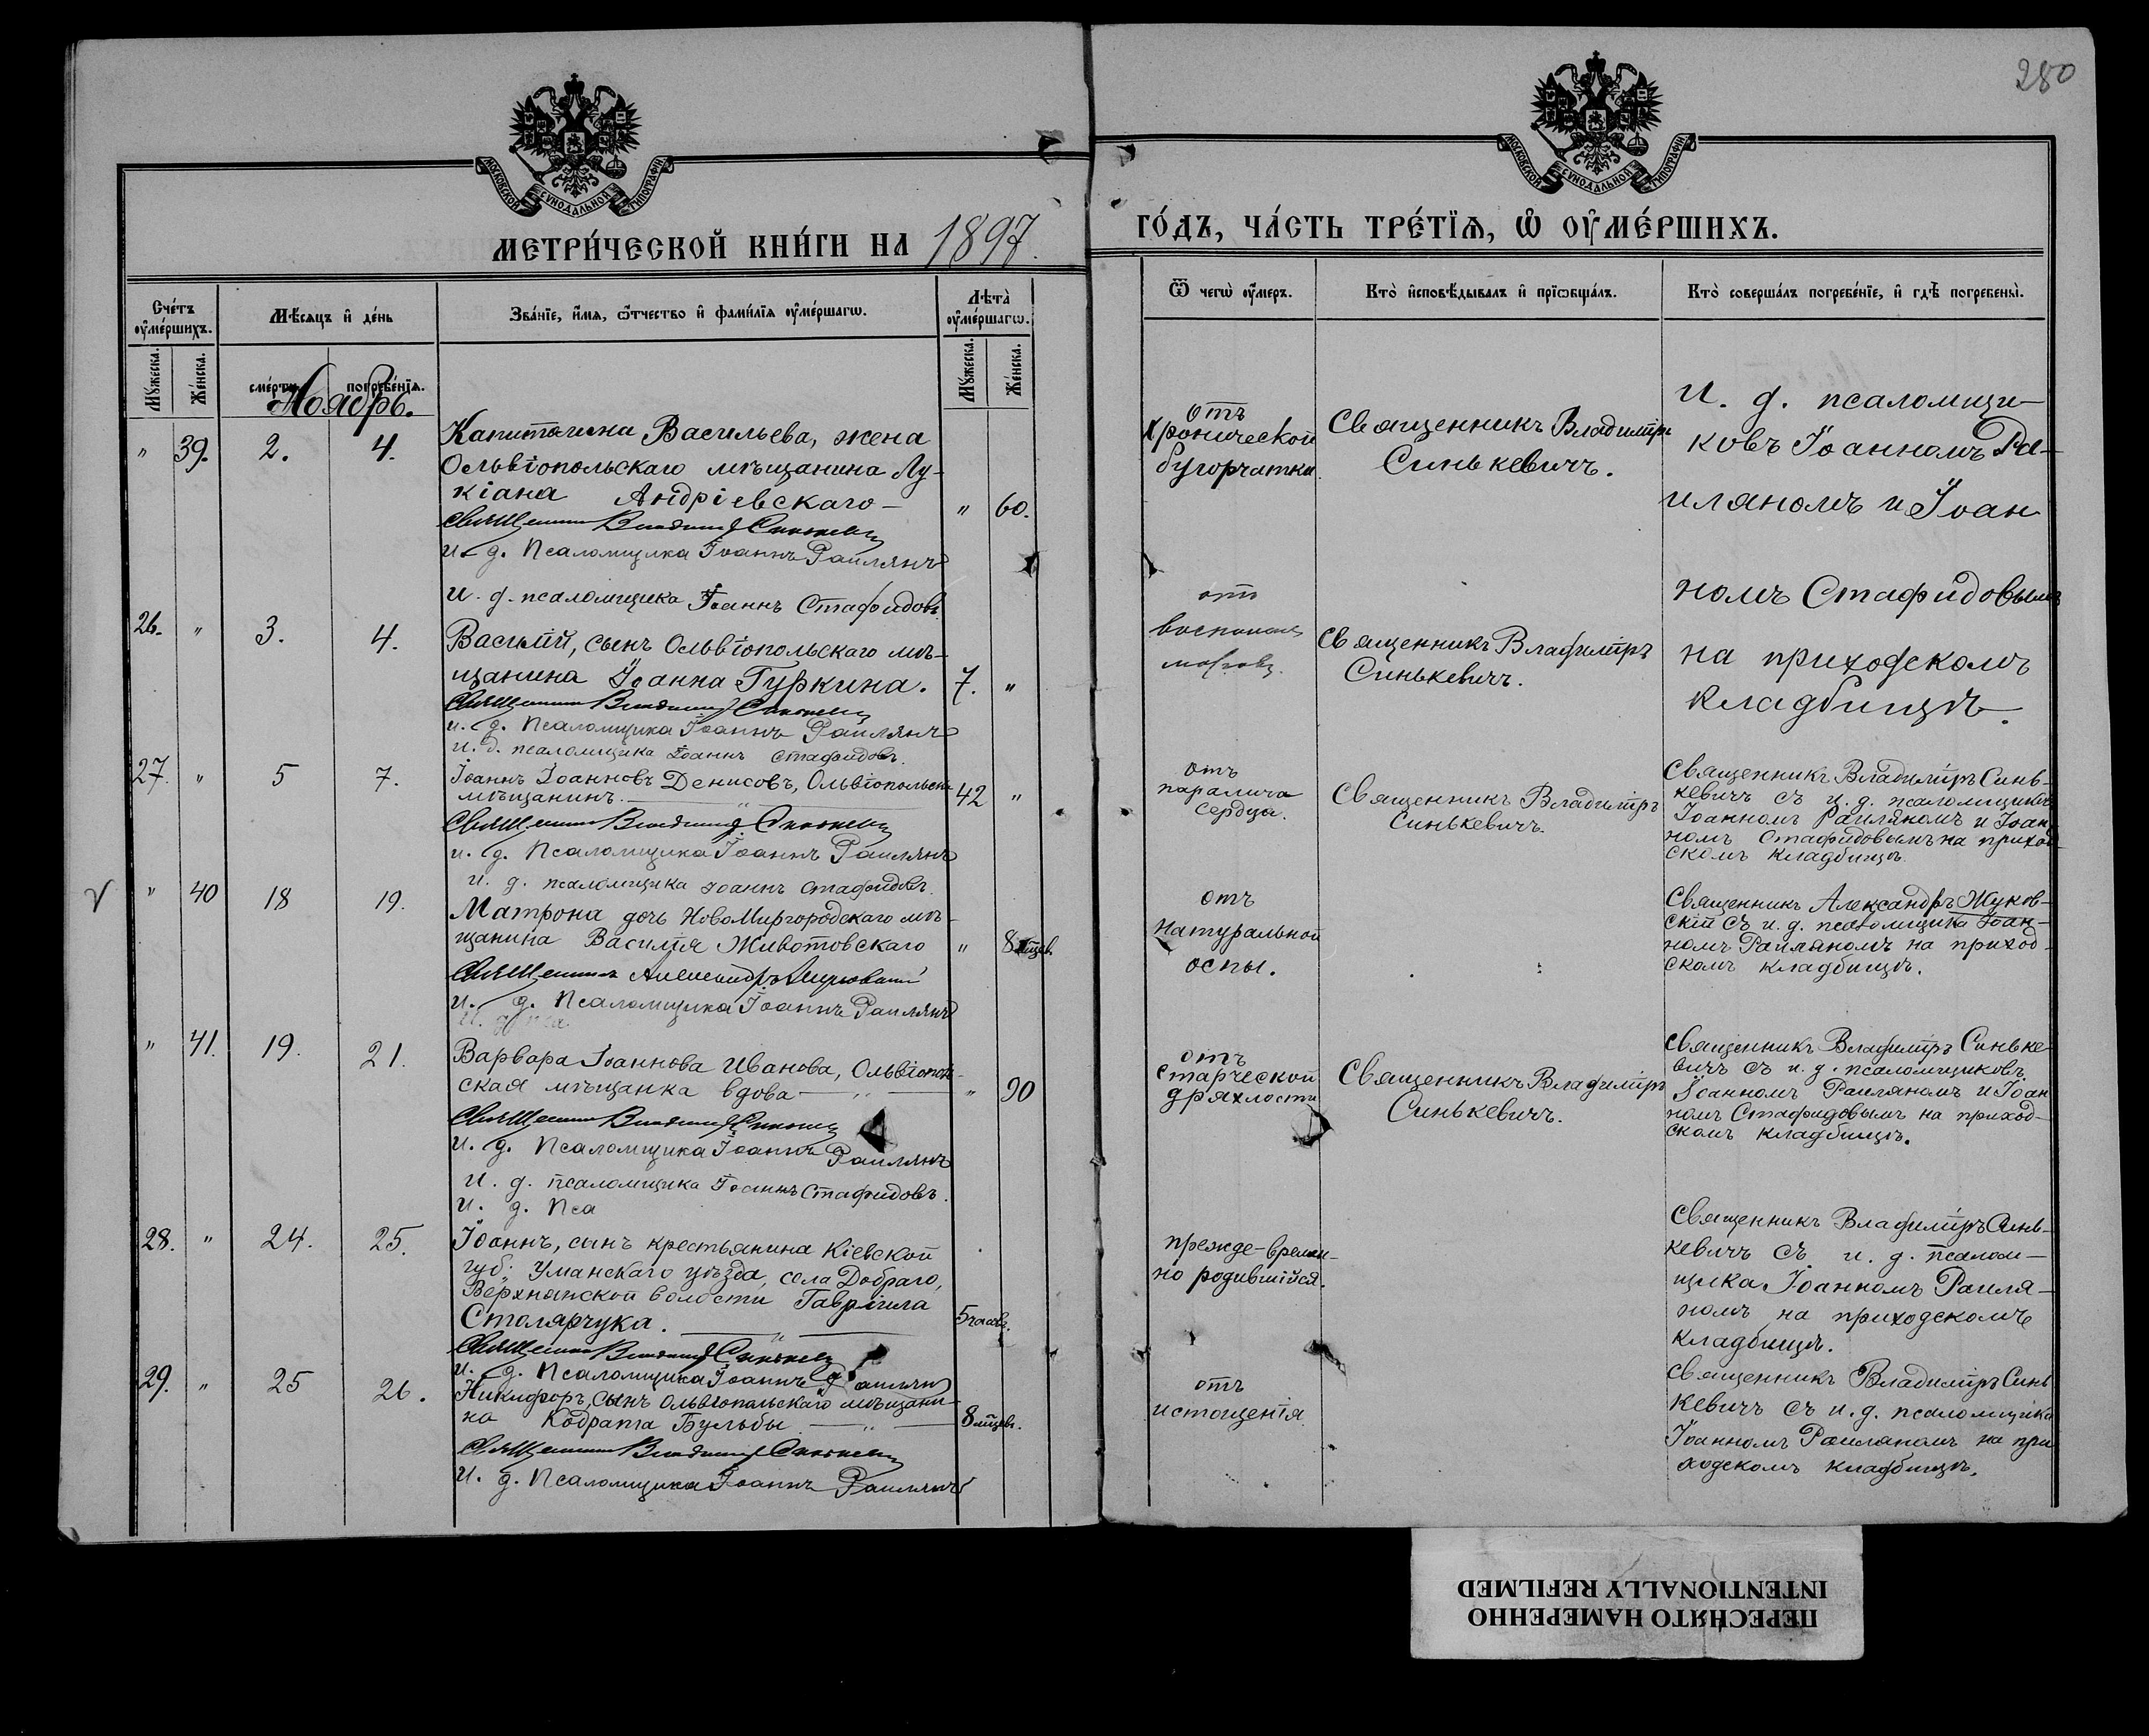 280
МОСКОВСКОЙ СУНОДАЛЬНОЙ ТИПОГРАФІИ
МОСКОВСКОЙ СУНОДАЛЬНОЙ ТИПОГРАФІИ
МЕТРИ́ЧЕСКОЙ КНИ́ГИ НА 1897.
ГО́ДЪ, ЧА́СТЬ ТРЕ́ТІѦ, Ѡ҆ ОУ҆МЕ́РШИХЪ.
Сче́тъ оу҆ме́ршихъ.
Мѣ́сяцъ и҆ де́нь
Зва́нїе, и҆́мя, ѻ҆́тчество и҆ фами́лїя оу҆ме́ршагѡ.
Лѣ́та̀ оу҆ме́ршагѡ.
Ѿ чегѡ̀ оу҆́меръ.
Кто̀ и҆сповѣ́дывалъ и҆ прїѡбща́лъ.
Кто̀ соверша́лъ погребе́нїе, и҆ гдѣ̀ погребены̀.
Мꙋ́жеска. Же́нска.
сме́рти. погребе́нїя.
Мꙋ́жеска. Же́нска.
Ноябрь.
" 39. 2. 4.
Капитолина Васильева, жена
Ольвіопольскаго мѣщанина Лу-
кіана Андріевскаго —
" 60.
Священникъ Владиміръ Синькевичъ
и. д. Псаломщика Іоаннъ Раилянъ
и. д. псаломщика Іоаннъ Стафидовъ
отъ
хронической
бугорчатки
Священникъ Владиміръ
Синькевичъ.
и. д. псаломщи-
ковъ Іоанномъ Ра-
иляномъ и Іоан
номъ Стафидовымъ
на приходскомъ
кладбищѣ.
26. " 3. 4.
Василій, сынъ Ольвіопольскаго мѣ-
щанина Іоанна Гуркина.
7. "
Священникъ Владиміръ Синькевичъ
и. д. Псаломщика Іоаннъ Раилянъ
и. д. псаломщика Іоаннъ Стафидовъ.
отъ
Священникъ Владиміръ
Синькевичъ.
27. " 5 7.
Іоаннъ Іоанновъ Денисовъ, Ольвіопольскій
мѣщанинъ. — " —
42 "
Священникъ Владиміръ Синькевичъ
и. д. Псаломщика Іоаннъ Раилянъ
и. д. псаломщика Іоаннъ Стафидовъ.
отъ
паралича
сердца.
Священникъ Владиміръ
Синькевичъ.
Священникъ Владиміръ Синь-
кевичъ съ и. д. псаломщиковъ
Іоанномъ Раиляномъ и Іоан-
номъ Стафидовымъ на приход-
скомъ кладбищѣ.
" 40 18 19.
Матрона дочь НовоМиргородскаго мѣ-
щанина Василія Животовскаго
" 8 мѣсяцев.
Священникъ Александръ Жуковскій
и. д. Псаломщика Іоаннъ Раилянъ
и. д. пса
отъ
натуральной
оспы.
Священникъ Александръ Жуков-
скій съ и. д. псаломщика Іоан-
номъ Раиляномъ на приход-
скомъ кладбищѣ.
" 41. 19. 21.
Варвара Іоаннова Иванова, Ольвіополь-
ская мѣщанка вдова — " —
" 90
Священникъ Владиміръ Синькевичъ
и. д. Псаломщика Іоаннъ Раилянъ
и. д. псаломщика Іоаннъ Стафидовъ.
и. д. Пса
отъ
старческой
дряхлости
Священникъ Владиміръ
Синькевичъ.
Священникъ Владиміръ Синьке-
вичъ съ и. д. псаломщиковъ
Іоанномъ Раиляномъ и Іоан
номъ Стафидовымъ на приход-
скомъ кладбищѣ.
28. " 24. 25.
Іоаннъ, сынъ крестьянина Кіевской
губ. Уманскаго уѣзда, села Добраго,
Верхнянской волости Гавріила
Столярчука. — " —
5 часовъ.
Священникъ Владиміръ Синькевичъ
и. д. Псаломщика Іоаннъ Раилянъ
прежде-времен-
но родившійся.
Священникъ Владиміръ Синь-
кевичъ съ и. д. псалом-
щика Іоанномъ Раиля-
номъ на приходскомъ
кладбищѣ.
29. " 25 26.
Никифоръ, сынъ Ольвіопольскаго мѣщани-
на Кодрата Бульбы — " —
8 мѣсяцев.
Священникъ Владиміръ Синькевичъ
и. д. Псаломщика Іоаннъ Раилянъ
отъ
истощенія.
Священникъ Владиміръ Синь
кевичъ съ и. д. псаломщика
Іоанномъ Раиляномъ на при
ходскомъ кладбищѣ.
ПЕРЕСНЯТО НАМЕРЕННО
INTENTIONALLY REFILMED